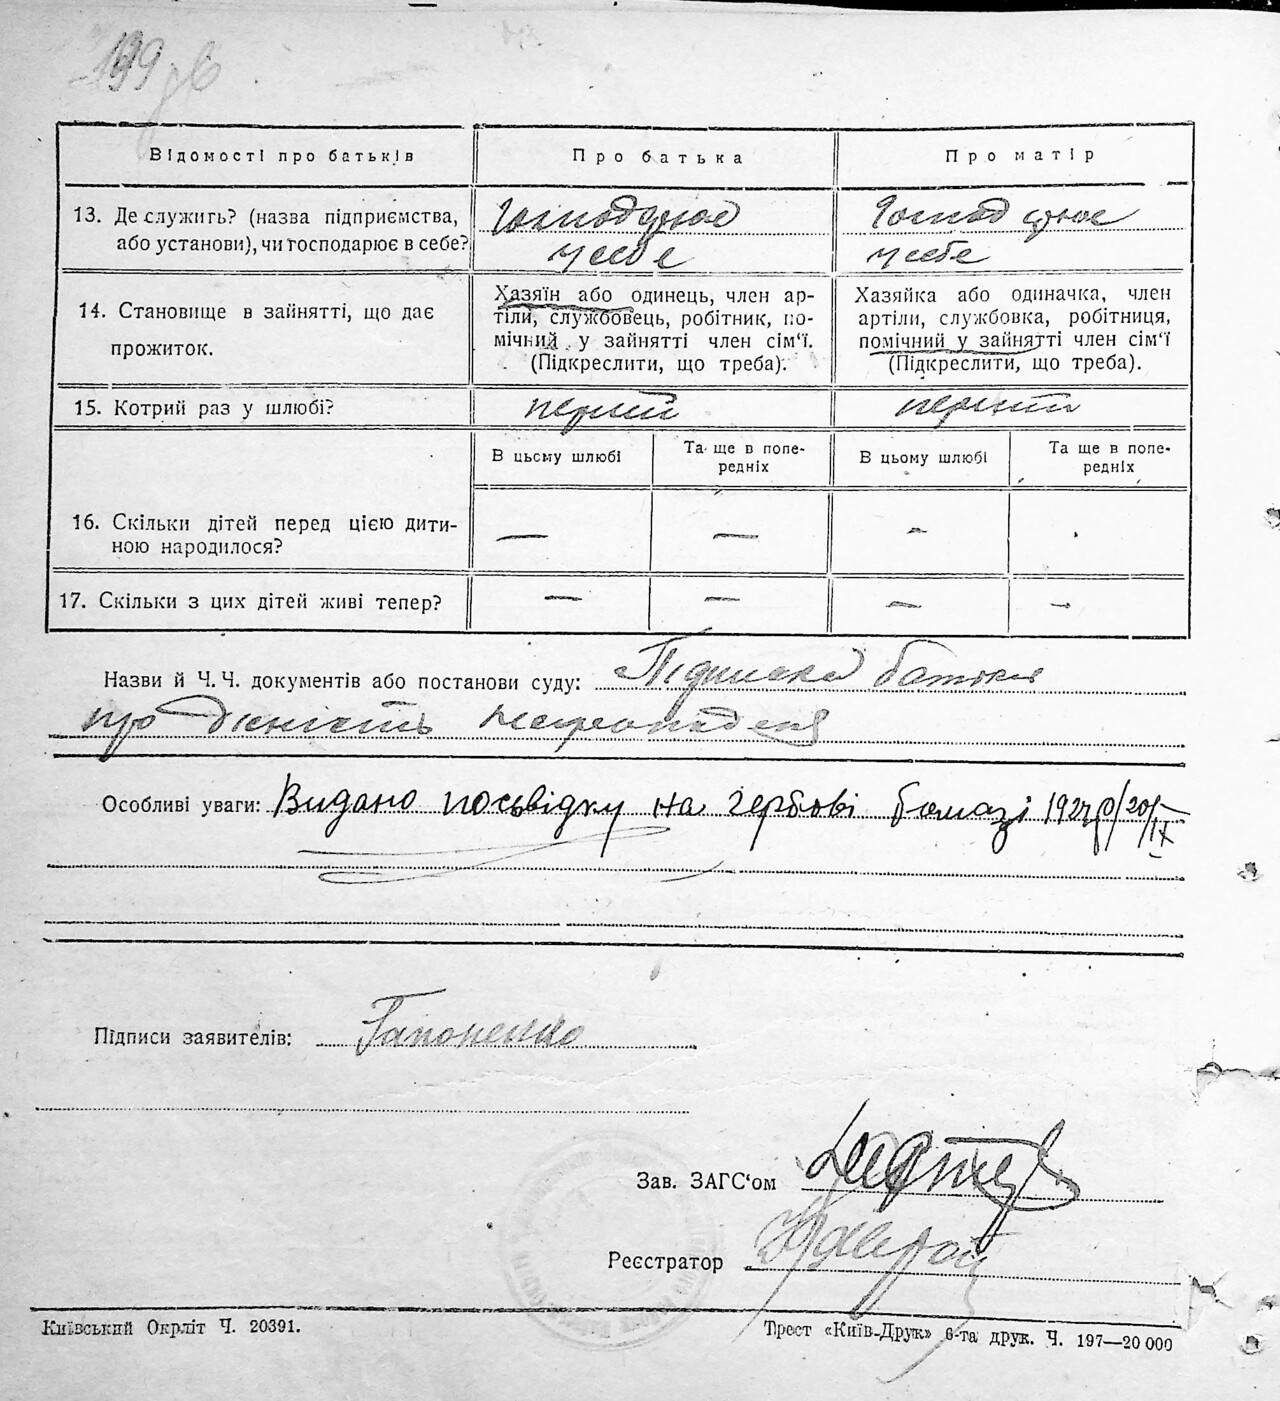 199 зв
Відомості про батьків Про батька Про матір
13. Де служить? (назва підприємства, Господарює Господарює
або установи), чи господарює в себе? у себе у себе
14. Становище в зайнятті, що дає
прожиток.
Хазяїн або одинець, член ар-
тіли, службовець, робітник, по-
мічний у зайнятті член сім‘ї.
(Підкреслити, що треба).
Хазяйка або одиначка, член
артіли, службовка, робітниця,
помічний у зайнятті член сім‘ї
(Підкреслити, що треба).
15. Котрий раз у шлюбі? перший перший
В цьому шлюбі Та ще в попе-
редніх В цьому шлюбі Та ще в попе-
редніх
16. Скільки дітей перед цією дити-
ною народилося? — — -
17. Скільки з цих дітей живі тепер? — — — —
Назви й Ч. Ч. документів або постанови суду: Підписка батька
про дійсність
Особливі уваги: Видано посьвідку на гербові бомазі 1927р/20/IX
Підписи заявителів: Гапоненко
Зав. ЗАГС‘ом
Реєстратор
Київський Окрліт Ч. 20391.
Трест «Київ-Друк» 6-та друк. Ч. 197—20 000